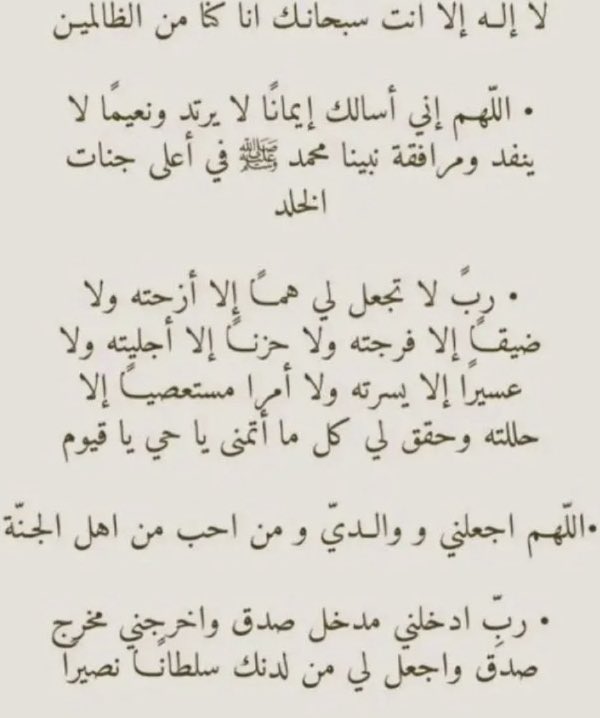 لا إلـه إلا انت سبحانـك انا كنا من الظالميـن
• اللّهـم إني أسالك إيمانًا لا يرتد ونعيمًا لا
ينفد ومرافقة نبينا محمد ﷺ في أعلى جنات
الخلد
• ربً لا تجعل لي همـًا إلا أزحته ولا
ضيقـًا إلا فرجته ولا حزنـًا إلا أجليته ولا
عسيرًا إلا يسرته ولا أمرا مستعصيـًا إلا
حللته وحقق لي كل ما أتمنى يا حي يا قيوم
•اللّهـم اجعلني و والـديّ و من احب من اهل الجنّة
• ربِّ ادخلني مدخل صدق واخرجني مخرج
صدق واجعل لي من لدنك سلطانـًا نصيرًا